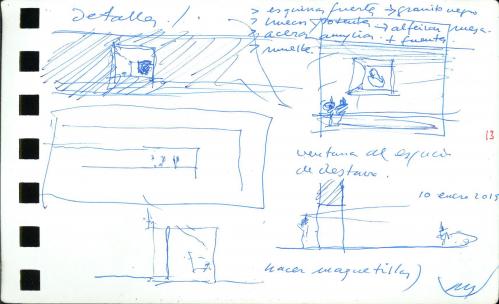 Detalles /.
> esquina fuerte → granito negro
> hueco potente → alfeizar mesa.
> acera amplia + fuente
> muelle.
13
ventana al espacio
de destaco.
10 enero 2019
hacer maquetillas)